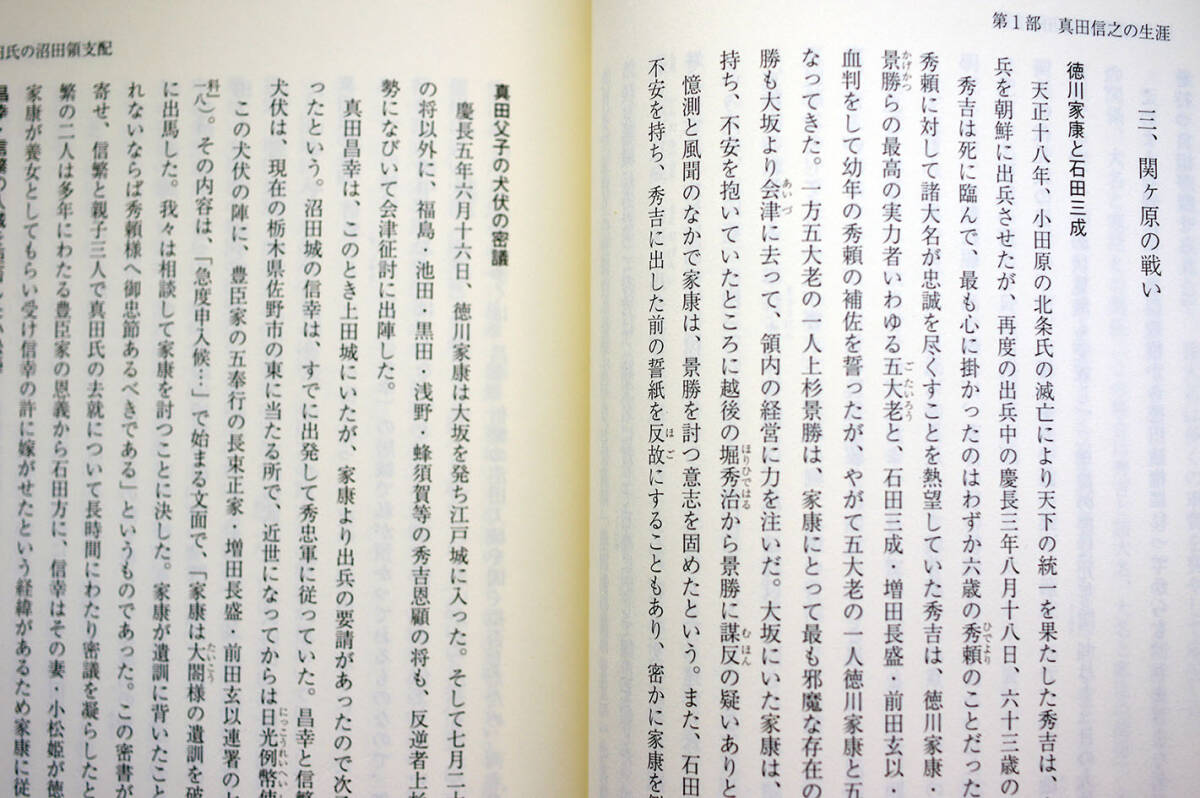 第1部　真田信之の生涯
三、関ヶ原の戦い
徳川家康と石田三成
天正十八年、小田原の北条氏の滅亡により天下の統一を果たした秀吉は、
兵を朝鮮に出兵させたが、再度の出兵中の慶長三年八月十八日、六十三歳の
秀吉は死に臨んで、最も心に掛かったのはわずか六歳の秀頼のことだった
秀頼に対して諸大名が忠誠を尽くすことを熱望していた秀吉は、徳川家康・
景勝らの最高の実力者いわゆる五大老と、石田三成・増田長盛・前田玄以・
血判をして幼年の秀頼の補佐を誓ったが、やがて五大老の一人徳川家康と五
なってきた。一方五大老の一人上杉景勝は、家康にとって最も邪魔な存在の
勝も大坂より会津に去って、領内の経営に力を注いだ。大坂にいた家康は、
持ち、不安を抱いていたところに越後の堀秀治から景勝に謀反の疑いありと
憶測と風聞のなかで家康は、景勝を討つ意志を固めたという。また、石田
不安を持ち、秀吉に出した前の誓紙を反故にすることもあり、密かに家康を
氏の沼田領支配
真田父子の犬伏の密議
慶長五年六月十六日、徳川家康は大坂を発ち江戸城に入った。そして七月二十
の将以外に、福島・池田・黒田・浅野・蜂須賀等の秀吉恩顧の将も、反逆者上杉
勢になびいて会津征討に出陣した。
真田昌幸は、このとき上田城にいたが、家康より出兵の要請があったので次
ったという。沼田城の信幸は、すでに出発して秀忠軍に従っていた。昌幸と信繁
犬伏は、現在の栃木県佐野市の東に当たる所で、近世になってからは日光例幣使
この犬伏の陣に、豊臣家の五奉行の長束正家・増田長盛・前田玄以連署の
一八）。その内容は、「急度申入候…」で始まる文面で、「家康は太閤様の遺訓を破
に出馬した。我々は相談して家康を討つことに決した。家康が遺訓に背いたこと
れないならば秀頼様へ御忠節あるべきである」というものであった。この密書が
寄せ、信繁と親子三人で真田氏の去就について長時間にわたり密議を凝らしたと
繁の二人は多年にわたる豊臣家の恩義から石田方に、信幸はその妻・小松姫が徳
家康が養女としてもらい受け信幸の許に嫁がせたという経緯があるため家康に従